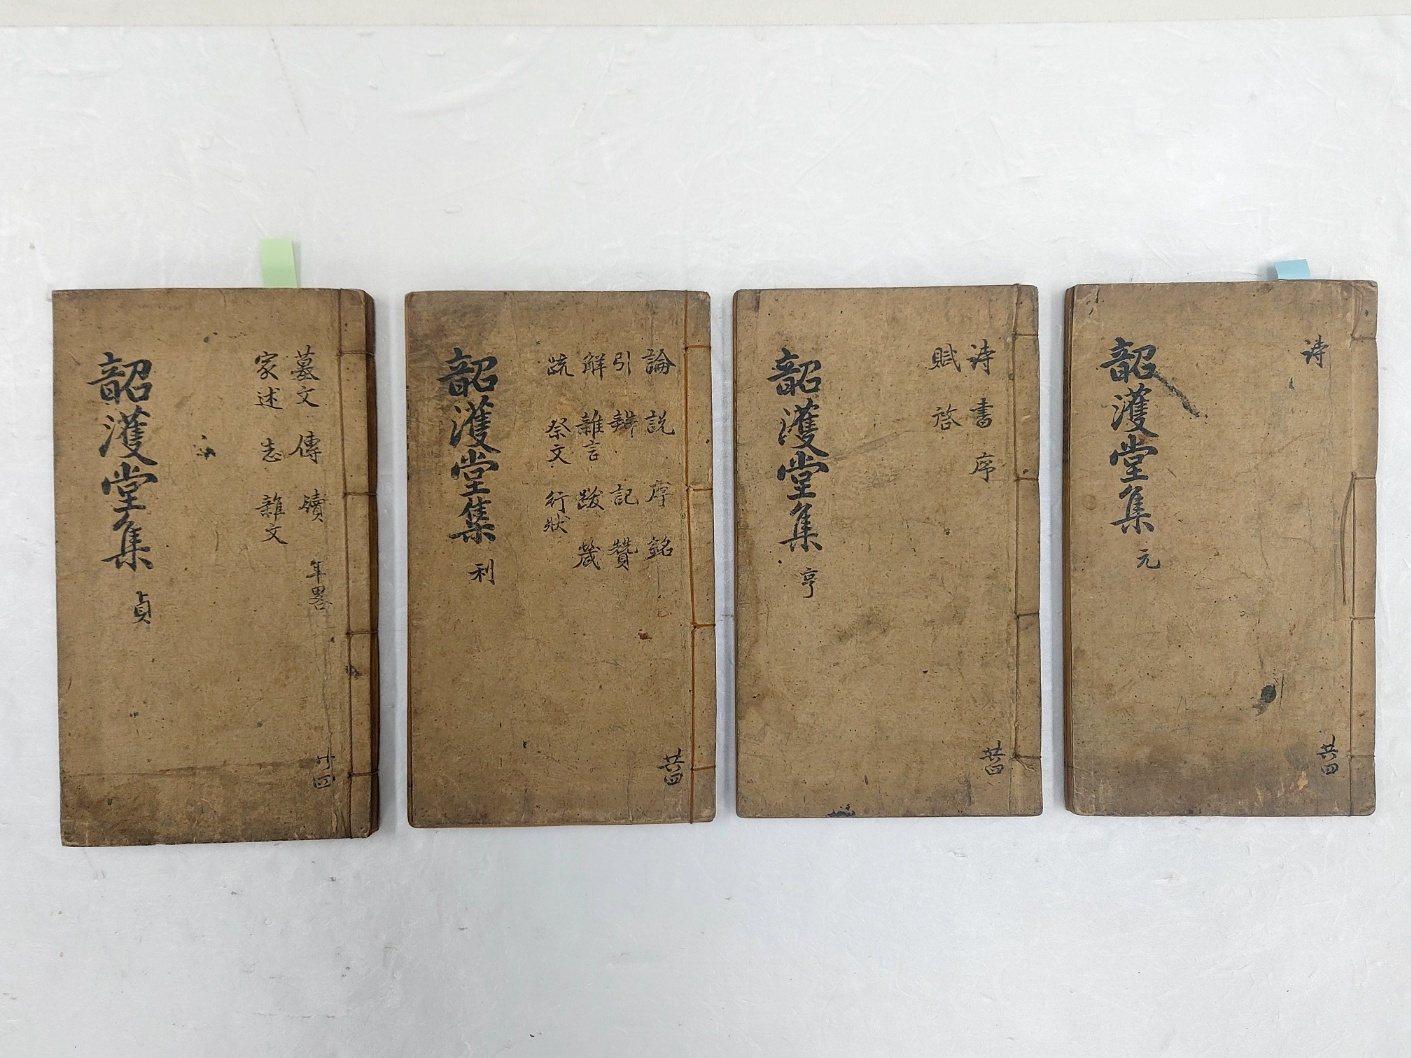 詩
韶濩堂集 元
共四
詩 書 序
賦 啓
韶濩堂集 亨
共四
論 說 序 銘
引 辨 記 贊
解 雜言 跋 箴
疏 祭文 行狀
韶濩堂集 利
共四
墓文 傳 牘 年畧
家述 志 雜文
韶濩堂集 貞
四